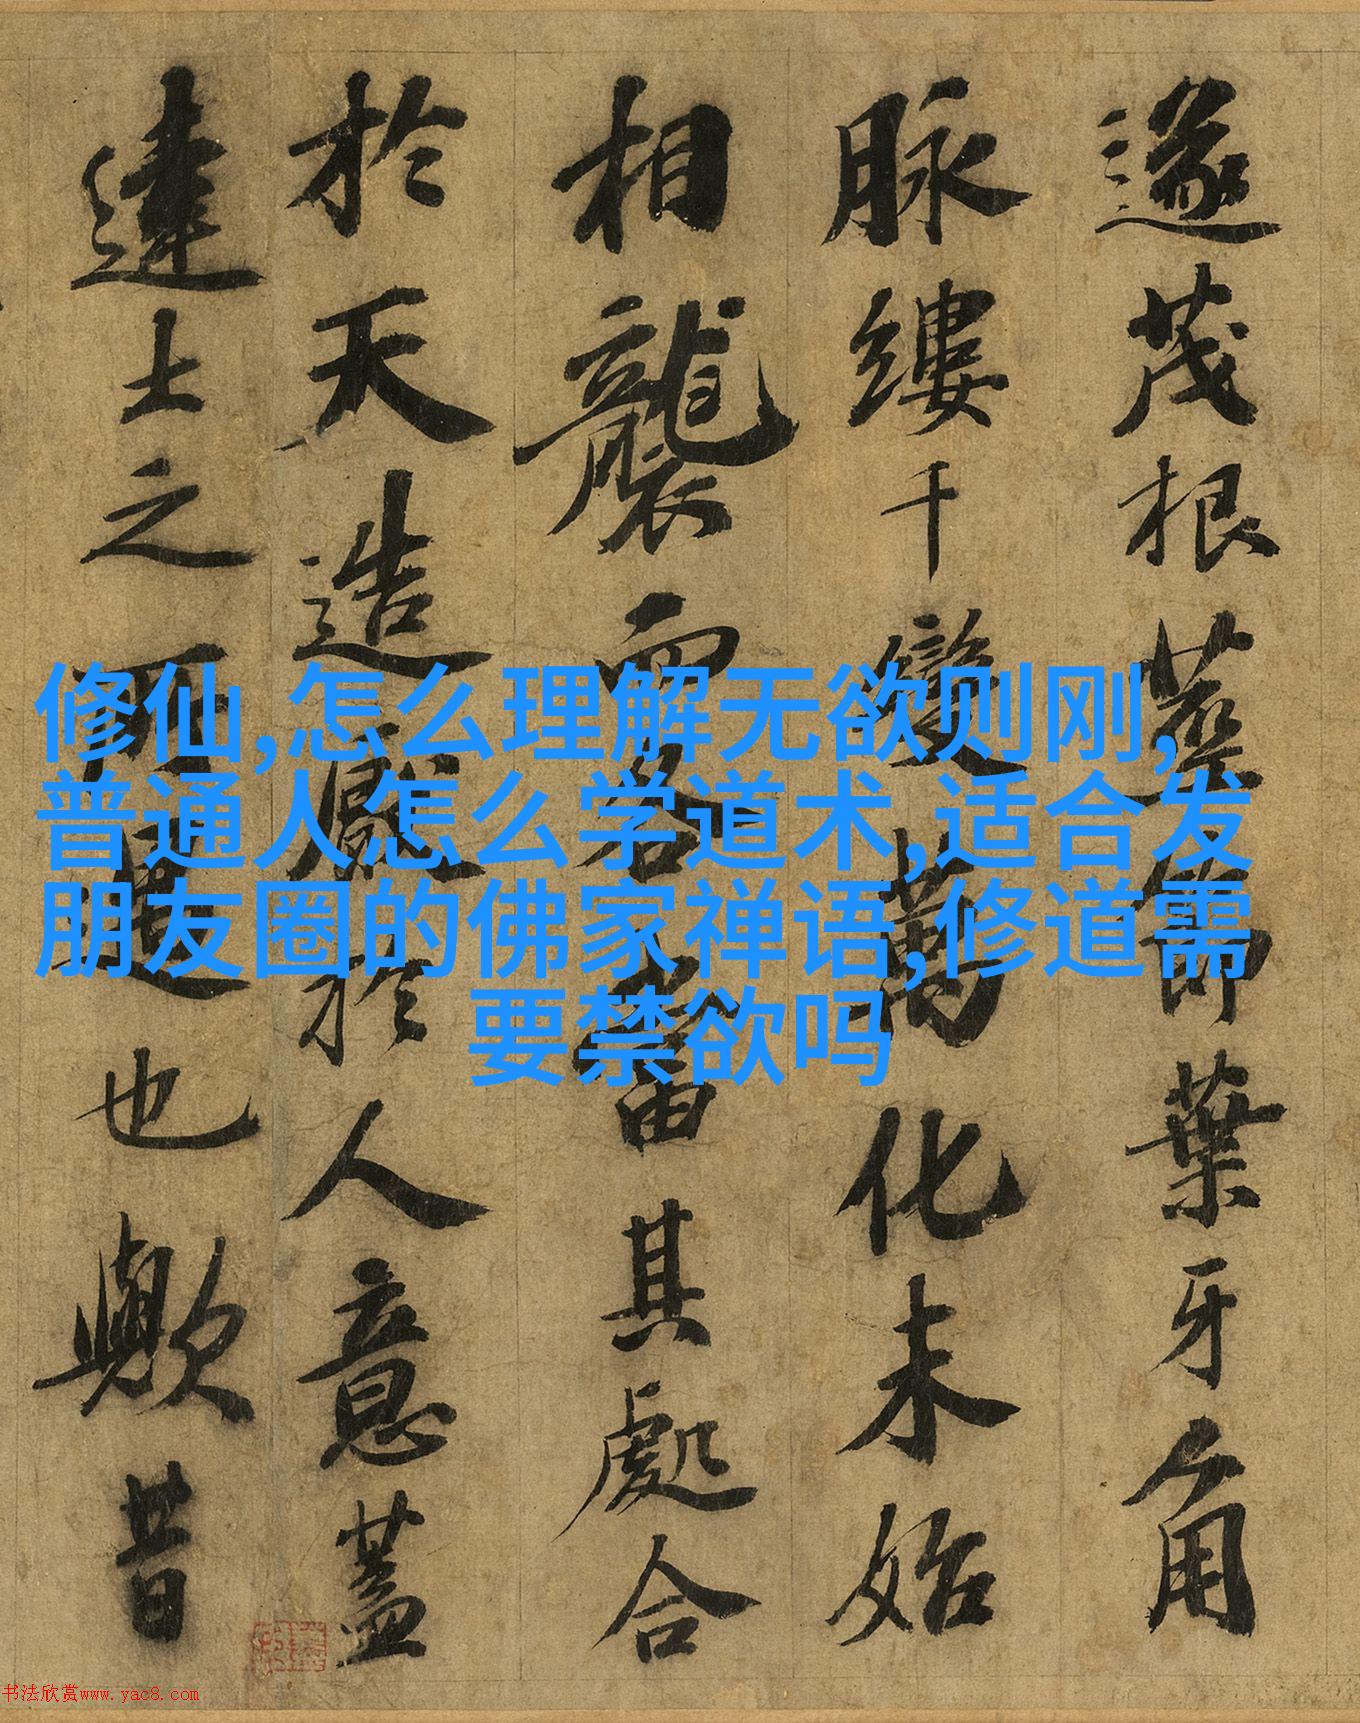 修仙,怎么理解无欲则刚,
普通人怎么学道术,适合发
朋友圈的佛家禅语,修道需
要禁欲吗
遂茂根莖節葉牙角
脉縷千變萬化未始
相襲而各當其處合
於天造厭於人意蓋
達士之所寓也歟昔
书法欣赏www.yac8.com